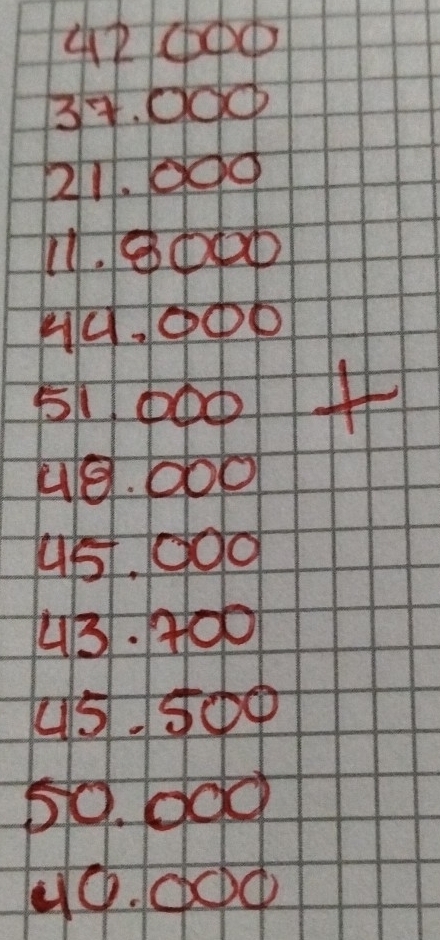 42 000
37.000
21.000
11.8000
44.000
51.000 +
48.000
45.000
43.700
45.500
50.000
40.000